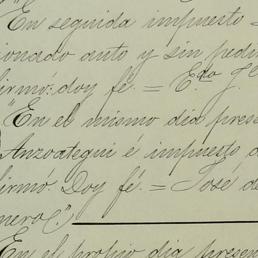 En seguida impuesto
ionado auto y sin pedir
irmó: doy fé. = Edo
"En el mismo dia pres
Anzoategui é impuesto d
irmó. Doy fé. = José de
nero(.")
En el propio dia presen